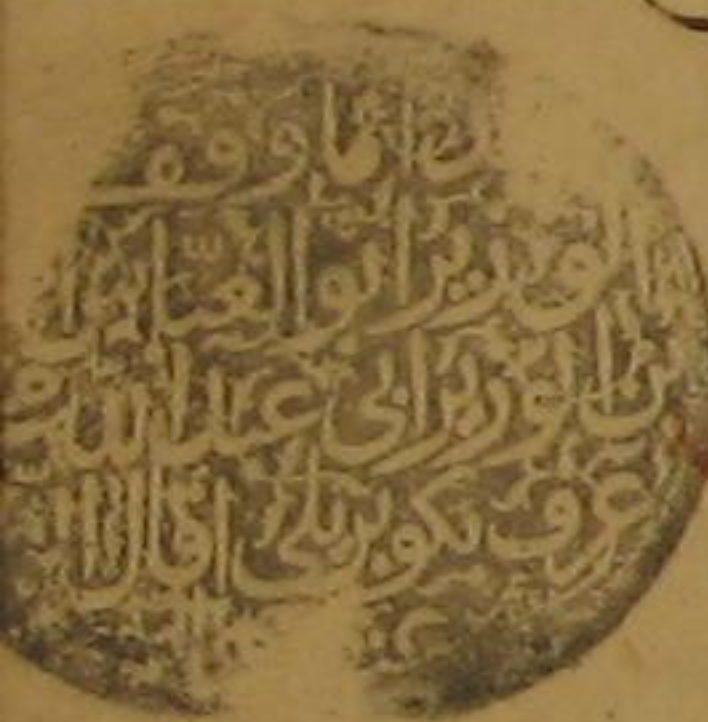 مما وقف
الوزير ابو العباس
بن الوزير ابي عبد الله
عرف بكوبريلي اقال الله